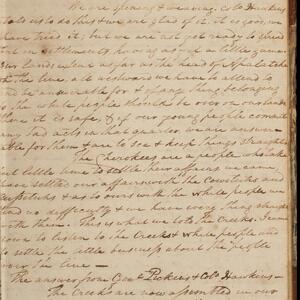 We are spining & weaving. Colo Hawkins
told us to do this & we are glad of it, it is good, we
have tried it, but we are not got ready to spread
out in settlements having as yet a little game
our lands extend as far as the head of Apalatche
the line, all westward we have to attend to
and be answerable for & if any thing belonging
to the white people should be over on our lands
there it is safe, & if our young people commit
any bad acts in that quarter we are answer-
able for them & are to see & keep things straight
The Cherokees are a people who take
but little time to settle their affairs we
have settled our affairs with the Cowetas and
Cussetuhs & as to ours with the white people we
find no difficulty & we have every thing straight
with them. This is what we to the Creeks, I come
now to listen to the Creeks & white people and
to settle the little business about the people
over the line —
The answer from Genl Pickens & Colo Hawkins —
The Creeks are now assembled in our